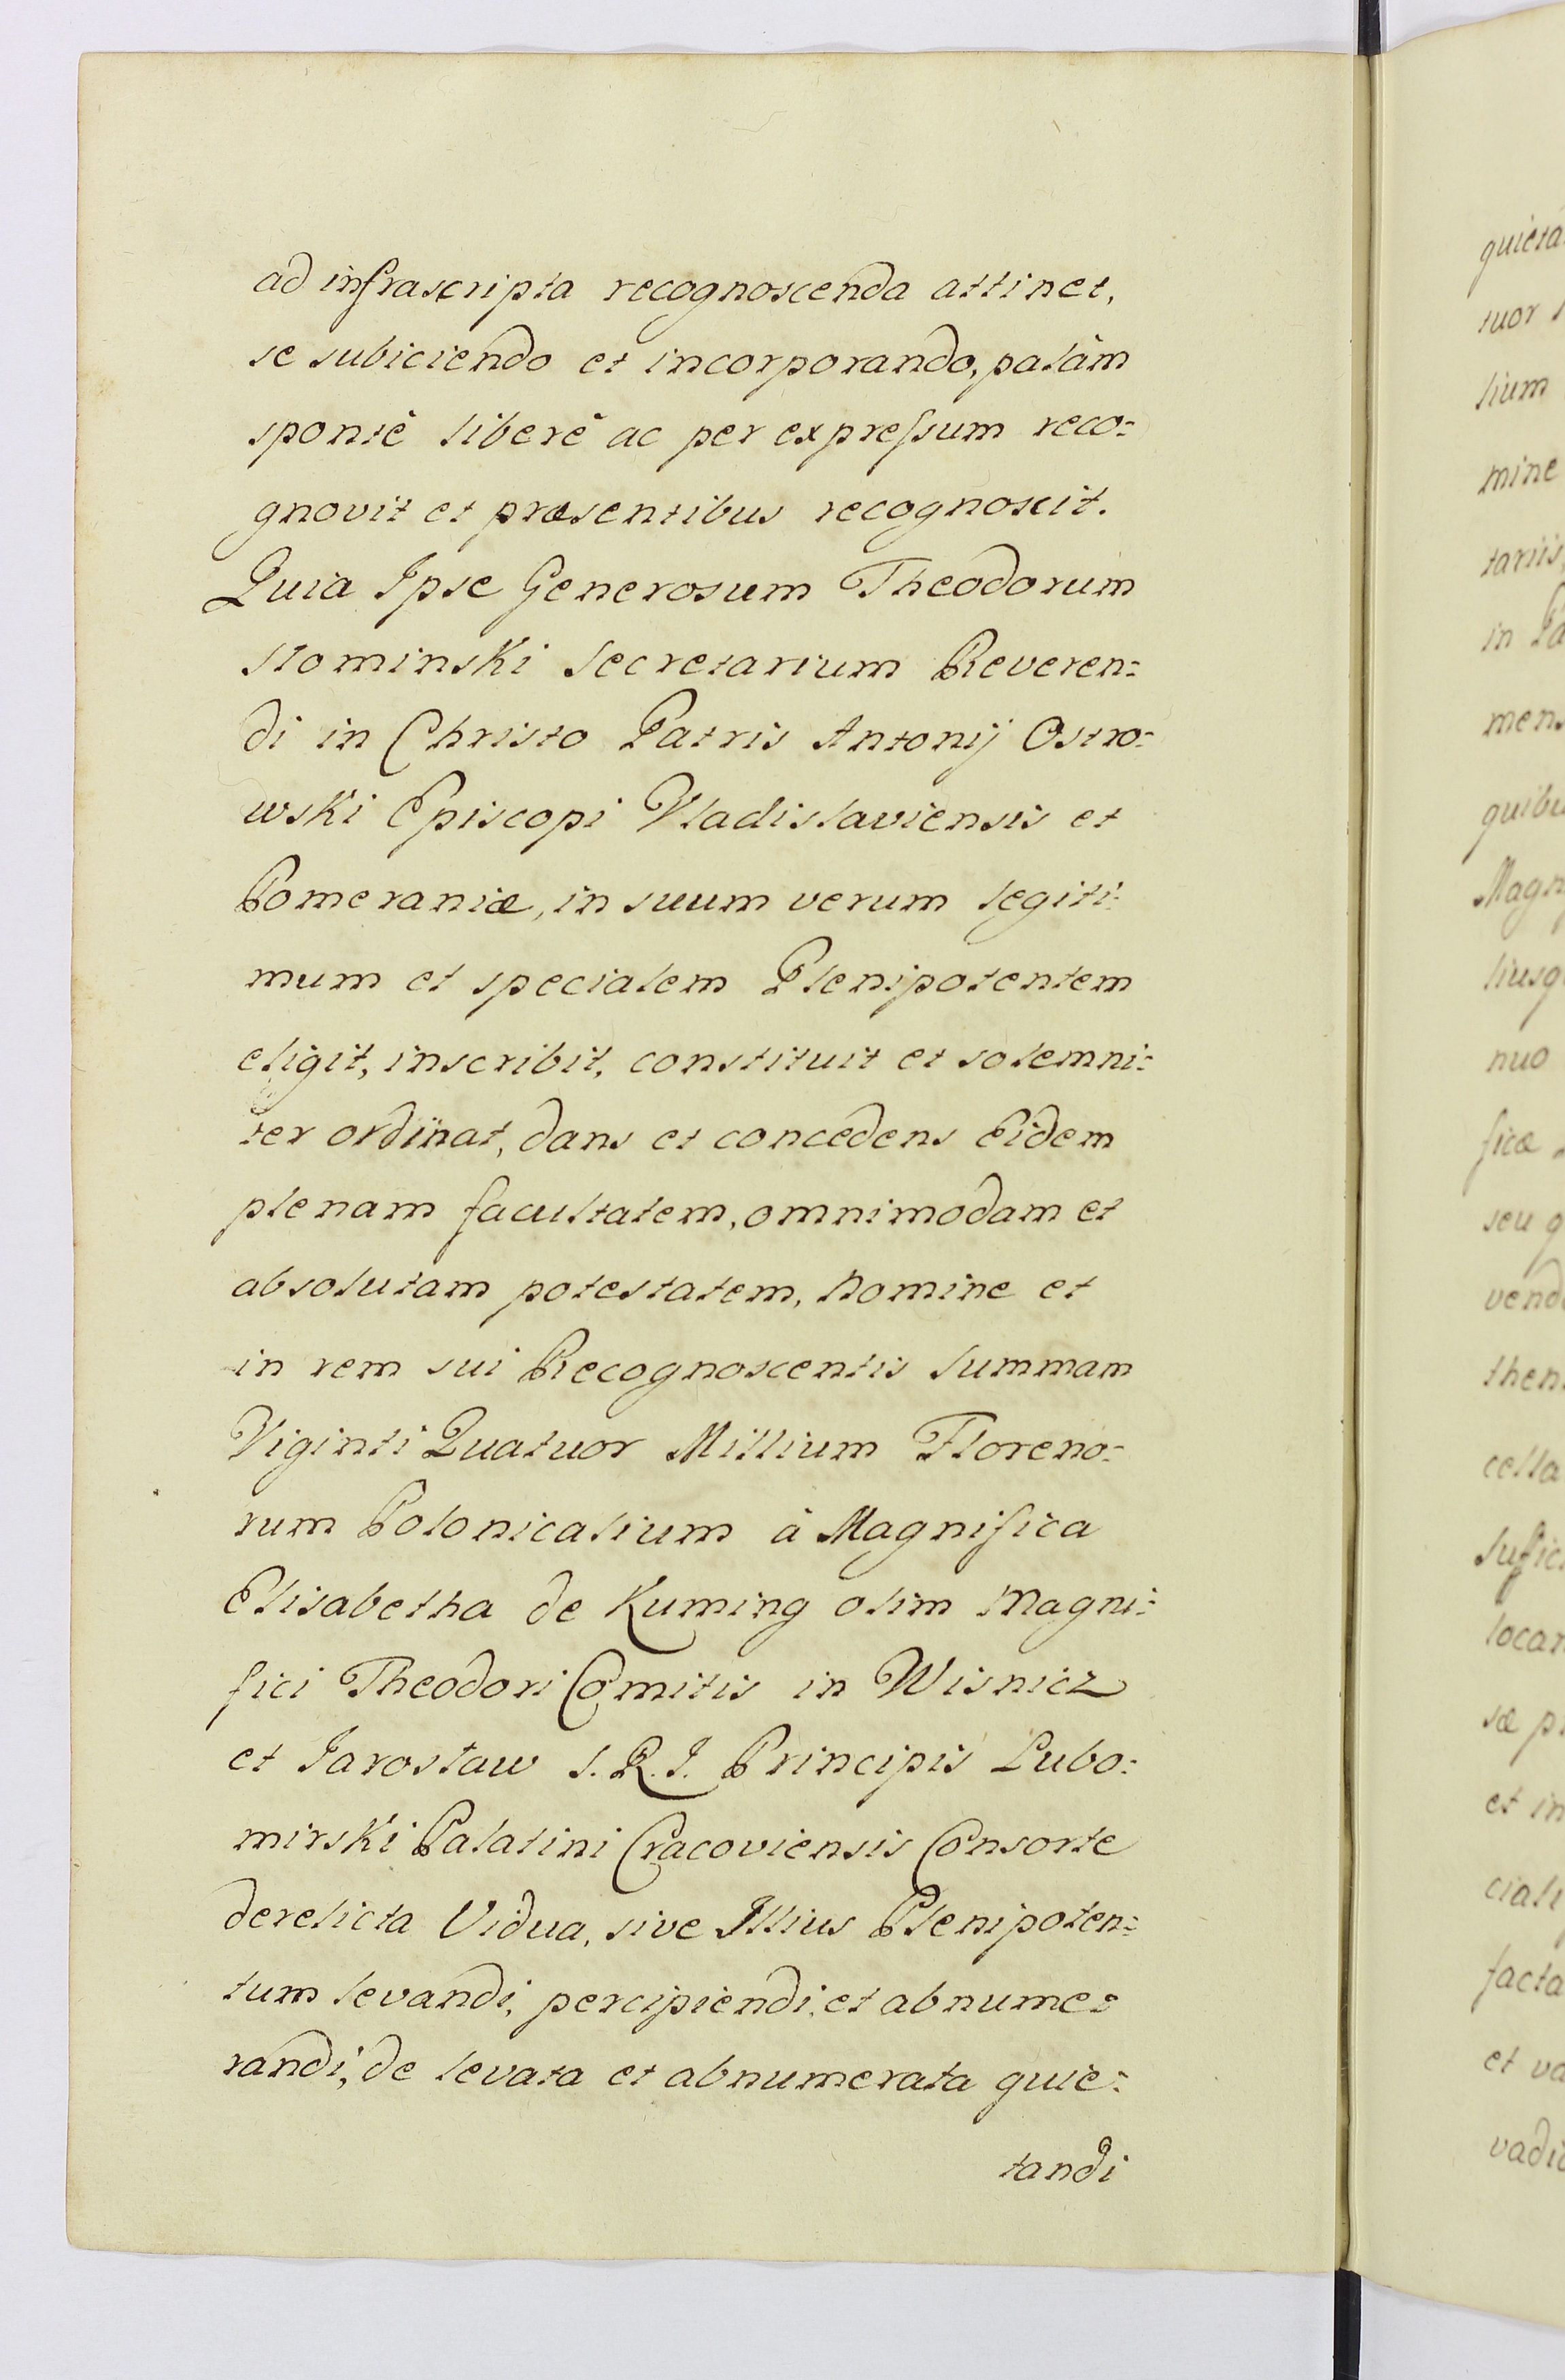 ad infrascripta recognoscenda attinet,
se subiciendo et incorporando, palàm
sponte libere ac per expressum reco:
gnovit et præsentibus recognoscit.
Quia Ipse Generosum Theodorum
Słominski Secretarium Reveren:
di in Christo Patris Antonij Ostro:
wski Episcopi Vladislaviensis et
Pomeraniæ, in suum verum legiti:
mum et specialem Plenipotentem
eligit, inscribit, constituit et solemni:
ter ordinat, dans et concedens Eidem
plenam facultatem, omnimodam et
absolutam potestatem, Nomine et
in rem sui Recognoscentis Summam
Viginti Quatuor Millium Floreno:
rum Polonicalium à Magnifica
Elisabetha de Kuming olim Magni:
fici Theodori Comitis in Wisnicz
et Jarosław S. R. J. Principis Lubo:
mirski Palatini Cracoviensis Consorte
derelicta Vidua, sive Illius Plenipoten:
tum levandi, percipiendi, et abnume:
randi, de levata et abnumerata quie:
tandi
quieta
tuor
lium
mine
tariis
in
mens
quibu
Magn
liusq
nuo
ficæ
seu q
vend
then
cella
Suffic
locan
sæ p
et in
ciali
facta
et va
vadi